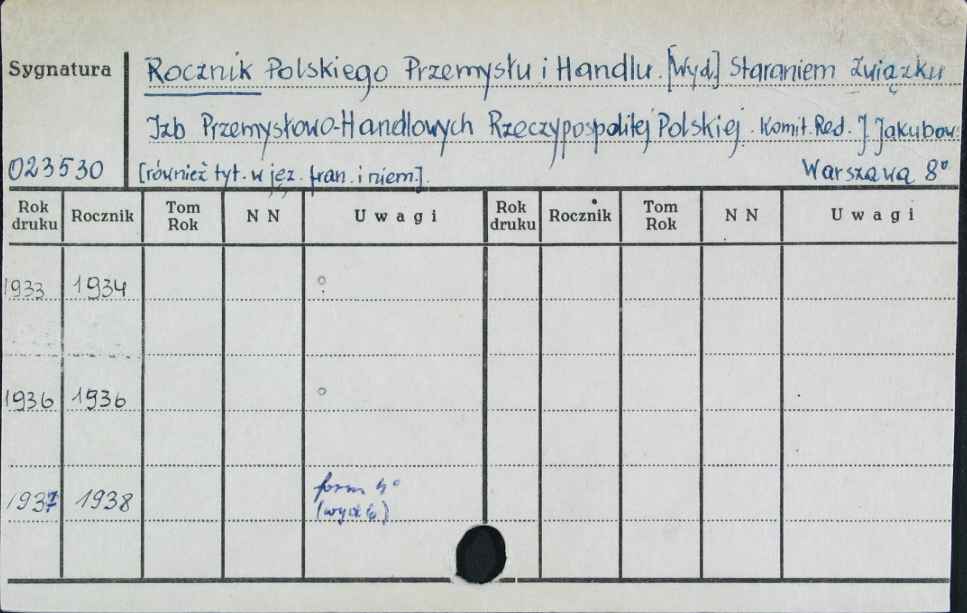 Sygnatura
Rocznik Polskiego Przemysłu i Handlu. [Wyd.] Staraniem Związku
Izb Przemysłowo-Handlowych Rzeczypospolitej Polskiej. Komit. Red. J. Jakubow.
023530 [również tyt. w jęz. fran. i niem.]. Warszawa 8°
Rok druku Rocznik Tom Rok N N Uwagi Rok druku Rocznik Tom Rok N N Uwagi
1933 1934
1936 1936
1937 1938 form 4°